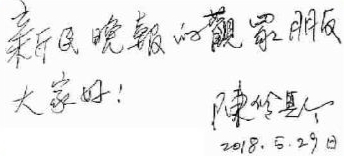 新民晚報的觀眾朋友
大家好!
陳
2018.5.29日